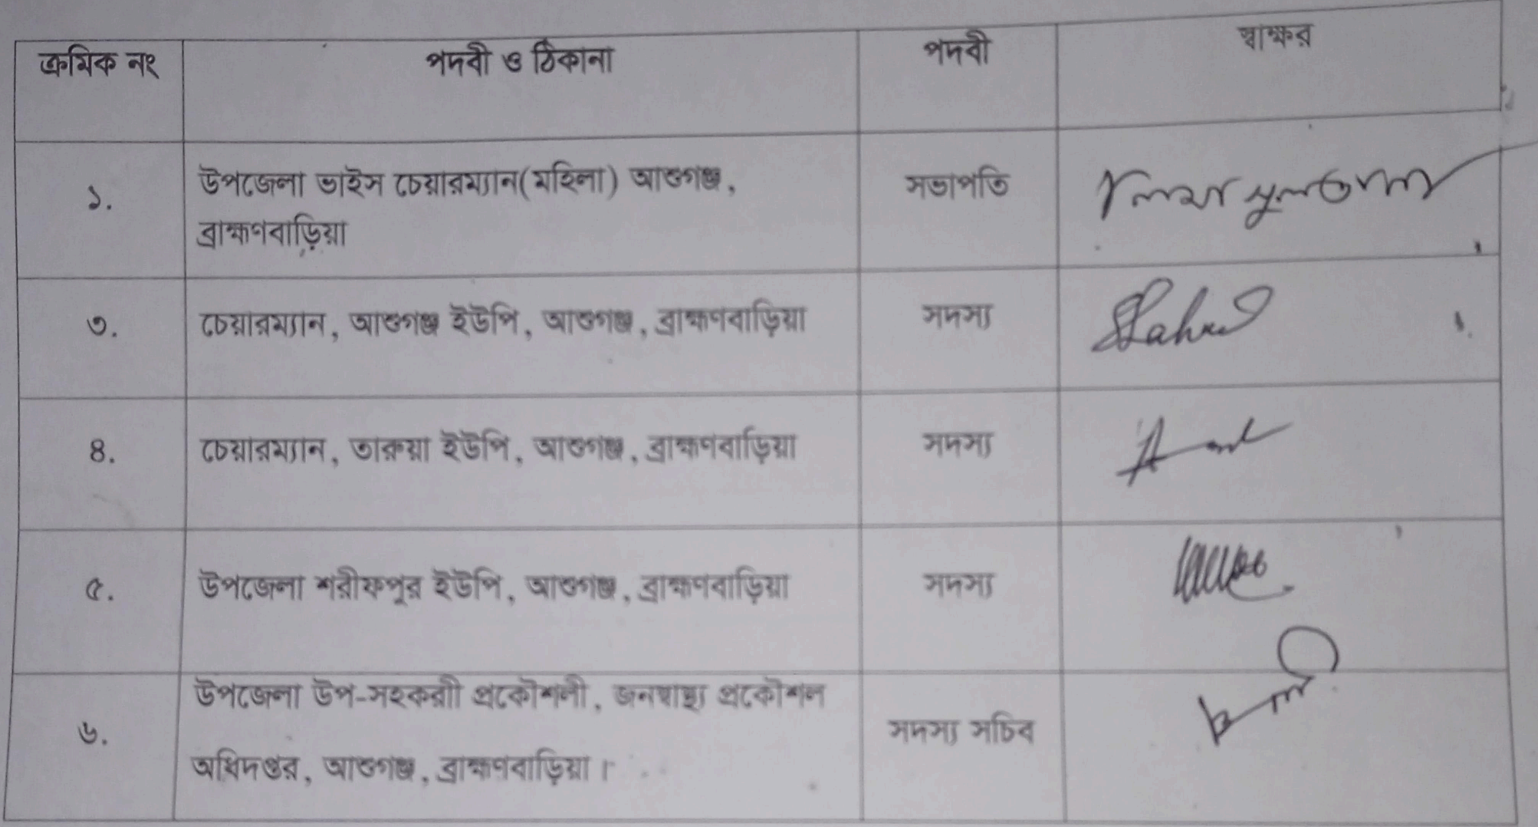 ক্রমিক নং পদবী ও ঠিকানা পদবী স্বাক্ষর
১. উপজেলা ভাইস চেয়ারম্যান(মহিলা) আশুগঞ্জ, সভাপতি
ব্রাহ্মণবাড়িয়া
৩. চেয়ারম্যান, আশুগঞ্জ ইউপি, আশুগঞ্জ, ব্রাহ্মণবাড়িয়া সদস্য
৪. চেয়ারম্যান, তারুয়া ইউপি, আশুগঞ্জ, ব্রাহ্মণবাড়িয়া সদস্য
৫. উপজেলা শরীফপুর ইউপি, আশুগঞ্জ, ব্রাহ্মণবাড়িয়া সদস্য
উপজেলা উপ-সহকরাী প্রকৌশলী, জনস্বাস্থ্য প্রকৌশল
৬. সদস্য সচিব
অধিদপ্তর, আশুগঞ্জ, ব্রাহ্মণবাড়িয়া।